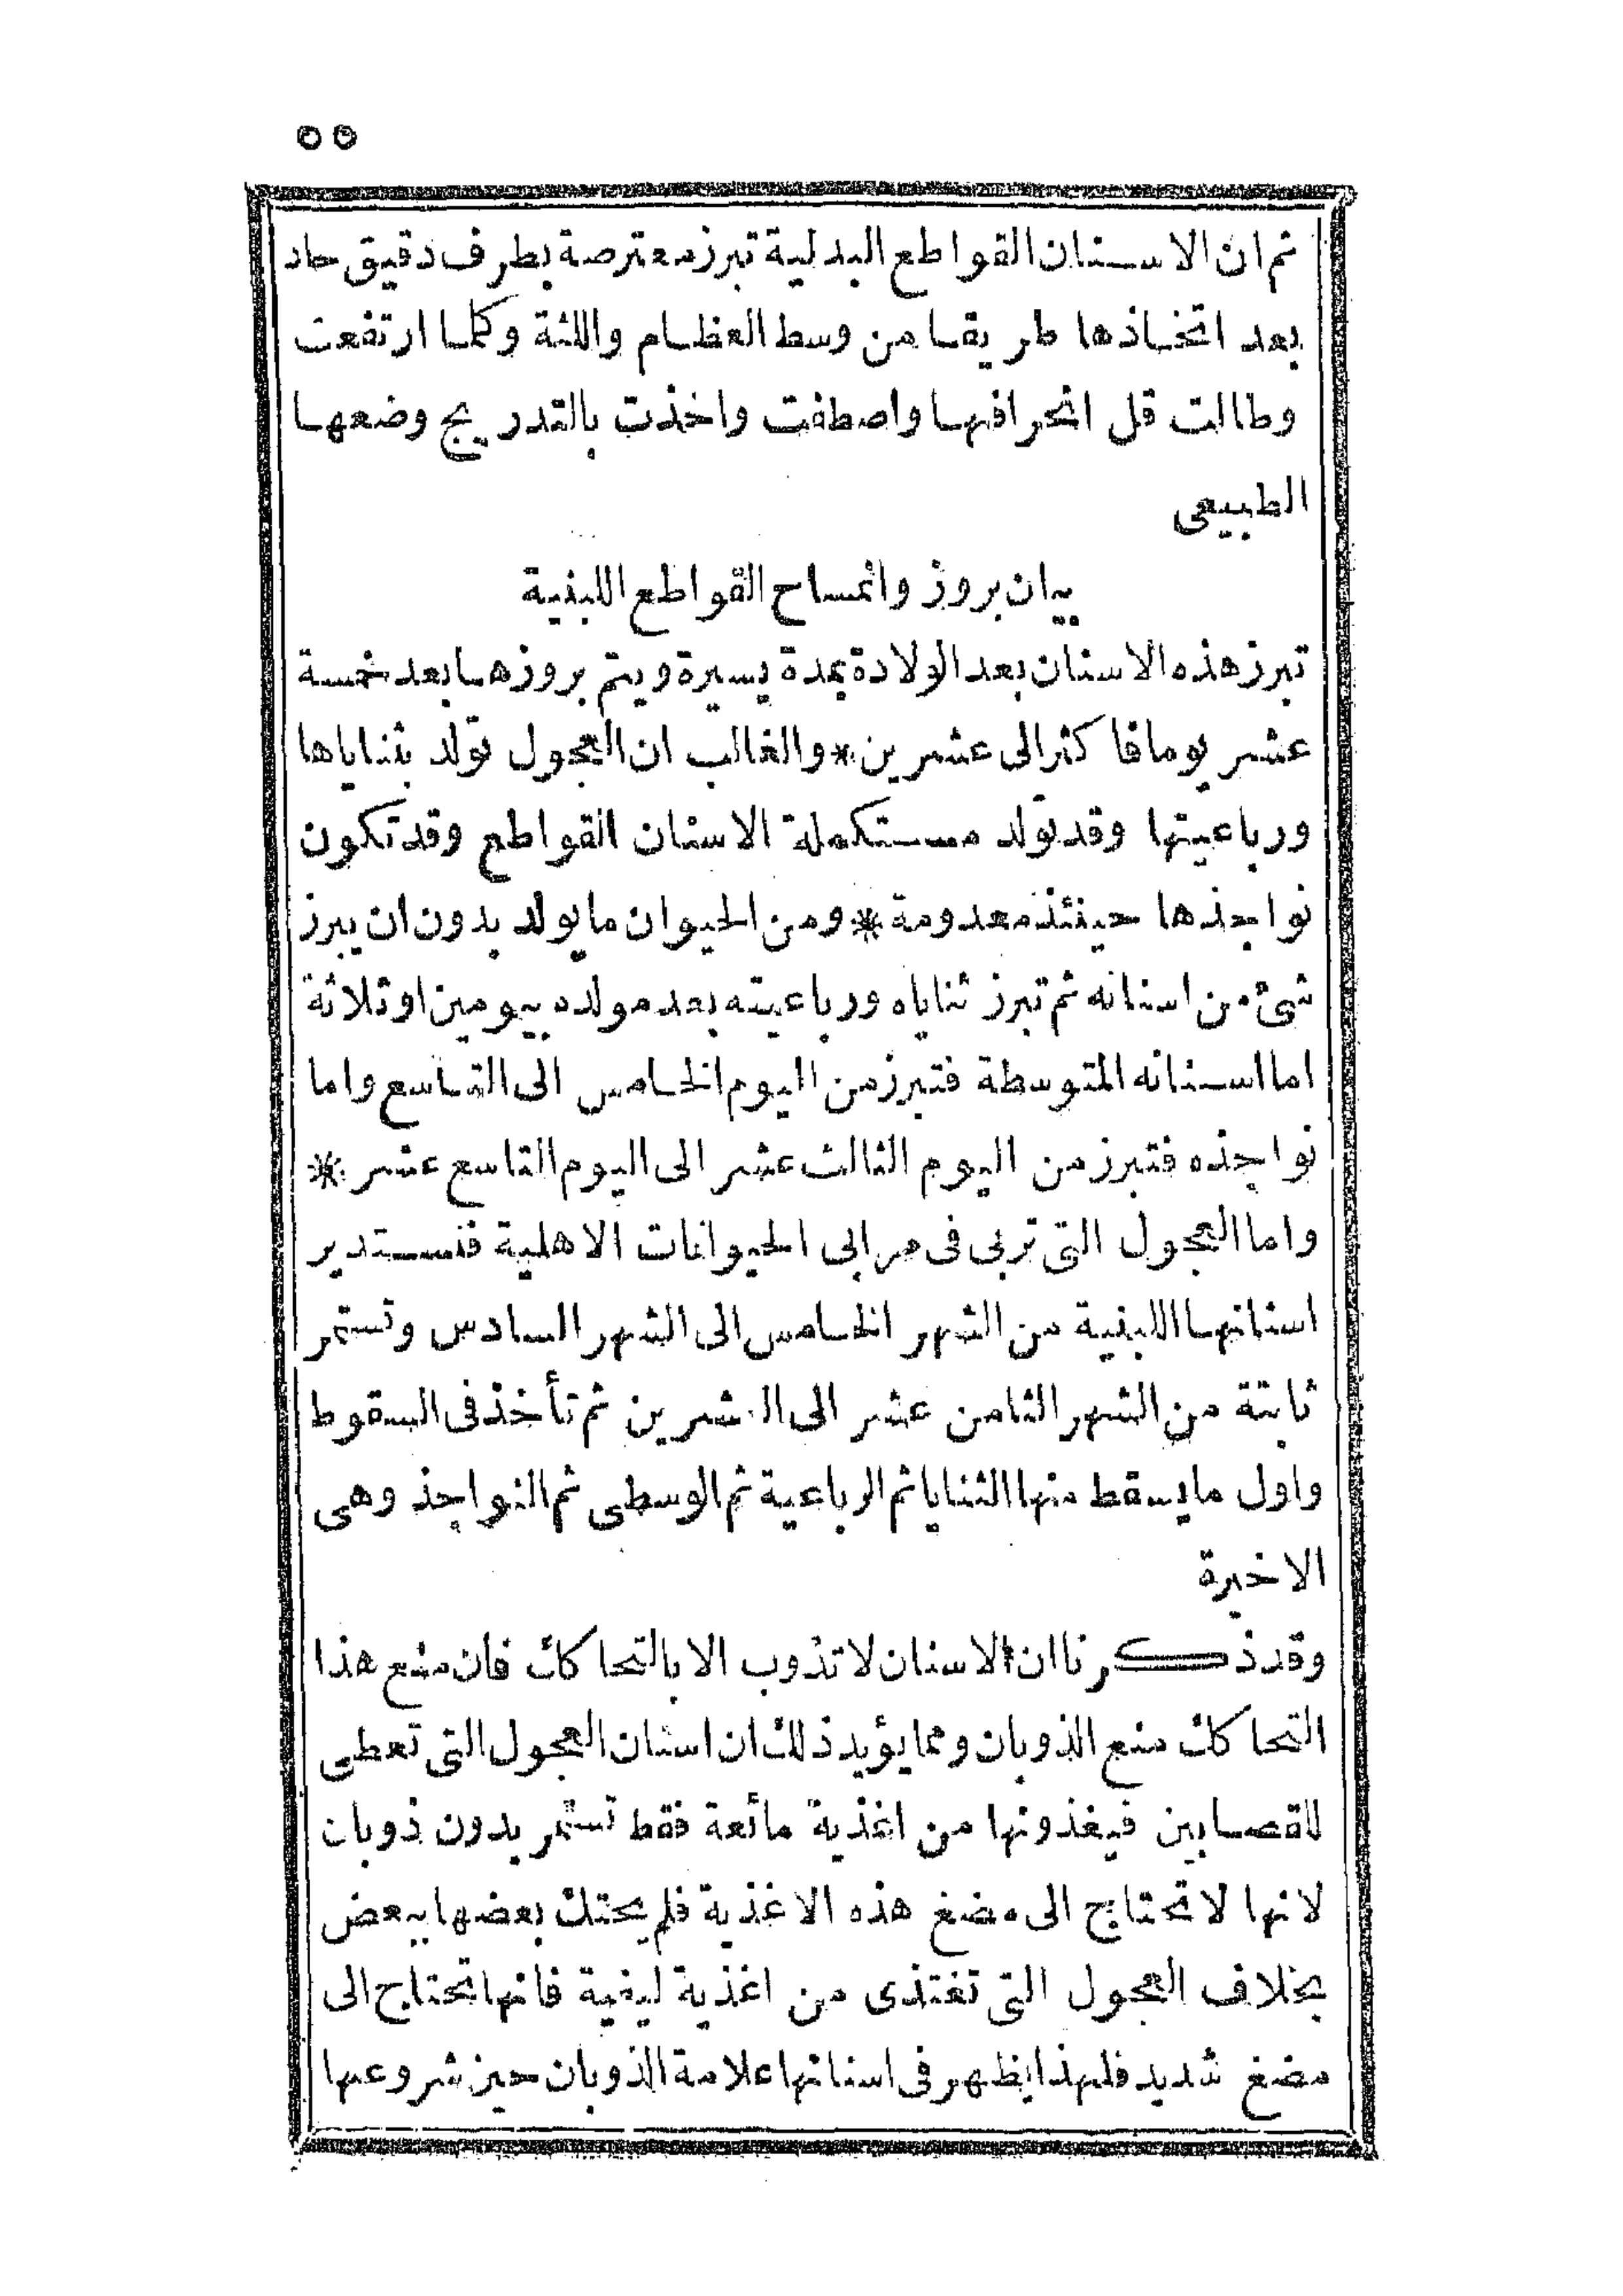 ٥٥
ثم ان الاسنان القواطع البدلية تبرز معترضة بطرف دقيق حاد
بعد اتخاذها طريقا من وسط العظام واللثة وكلما ارتفعت
وطالت قل انحرافها واصطفت واخذت بالتدريج وضعها
الطبيعى
بيان بروز وانمساح القواطع اللبنية
تبرز هذه الاسنان بعد الولادة بمدة يسيرة ويتم بروزها بعد خمسة
عشر يوما فاكثر الى عشرين * والغالب ان العجول تولد بثناياها
ورباعيتها وقد تولد مستكملة الاسنان القواطع وقد تكون
نواجذها حينئذ معدومة * ومن الحيوان ما يولد بدون ان يبرز
شئ من اسنانه ثم تبرز ثناياه ورباعيته بعد مولده بيومين او ثلاثة
اما اسنانه المتوسطة فتبرز من اليوم الخامس الى التاسع واما
نواجذه فتبرز من اليوم الثالث عشر الى اليوم التاسع عشر *
واما العجول التى تربى فى مرابى الحيوانات الاهلية فتستدير
اسنانها اللبنية من الشهر الخامس الى الشهر السادس وتستمر
ثابتة من الشهر الثامن عشر الى العشرين ثم تأخذ فى السقوط
واول ما يسقط منها الثنايا ثم الرباعية ثم الوسطى ثم النواجذ وهى
الاخيرة
وقد ذكرنا ان الاسنان لا تذوب الا بالتحاكك فان منع هذا
التحاكك منع الذوبان ومما يؤيد ذلك ان اسنان العجول التى تعطى
للقصابين فيغذونها من اغذية مائعة فقط تستمر بدون ذوبان
لانها لا تحتاج الى مضغ هذه الاغذية فلم يحتك بعضها ببعض
بخلاف العجول التى تغتذى من اغذية ليفية فانها تحتاج الى
مضغ شديد فلهذا يظهر فى اسنانها علامة الذوبان حين شروعها